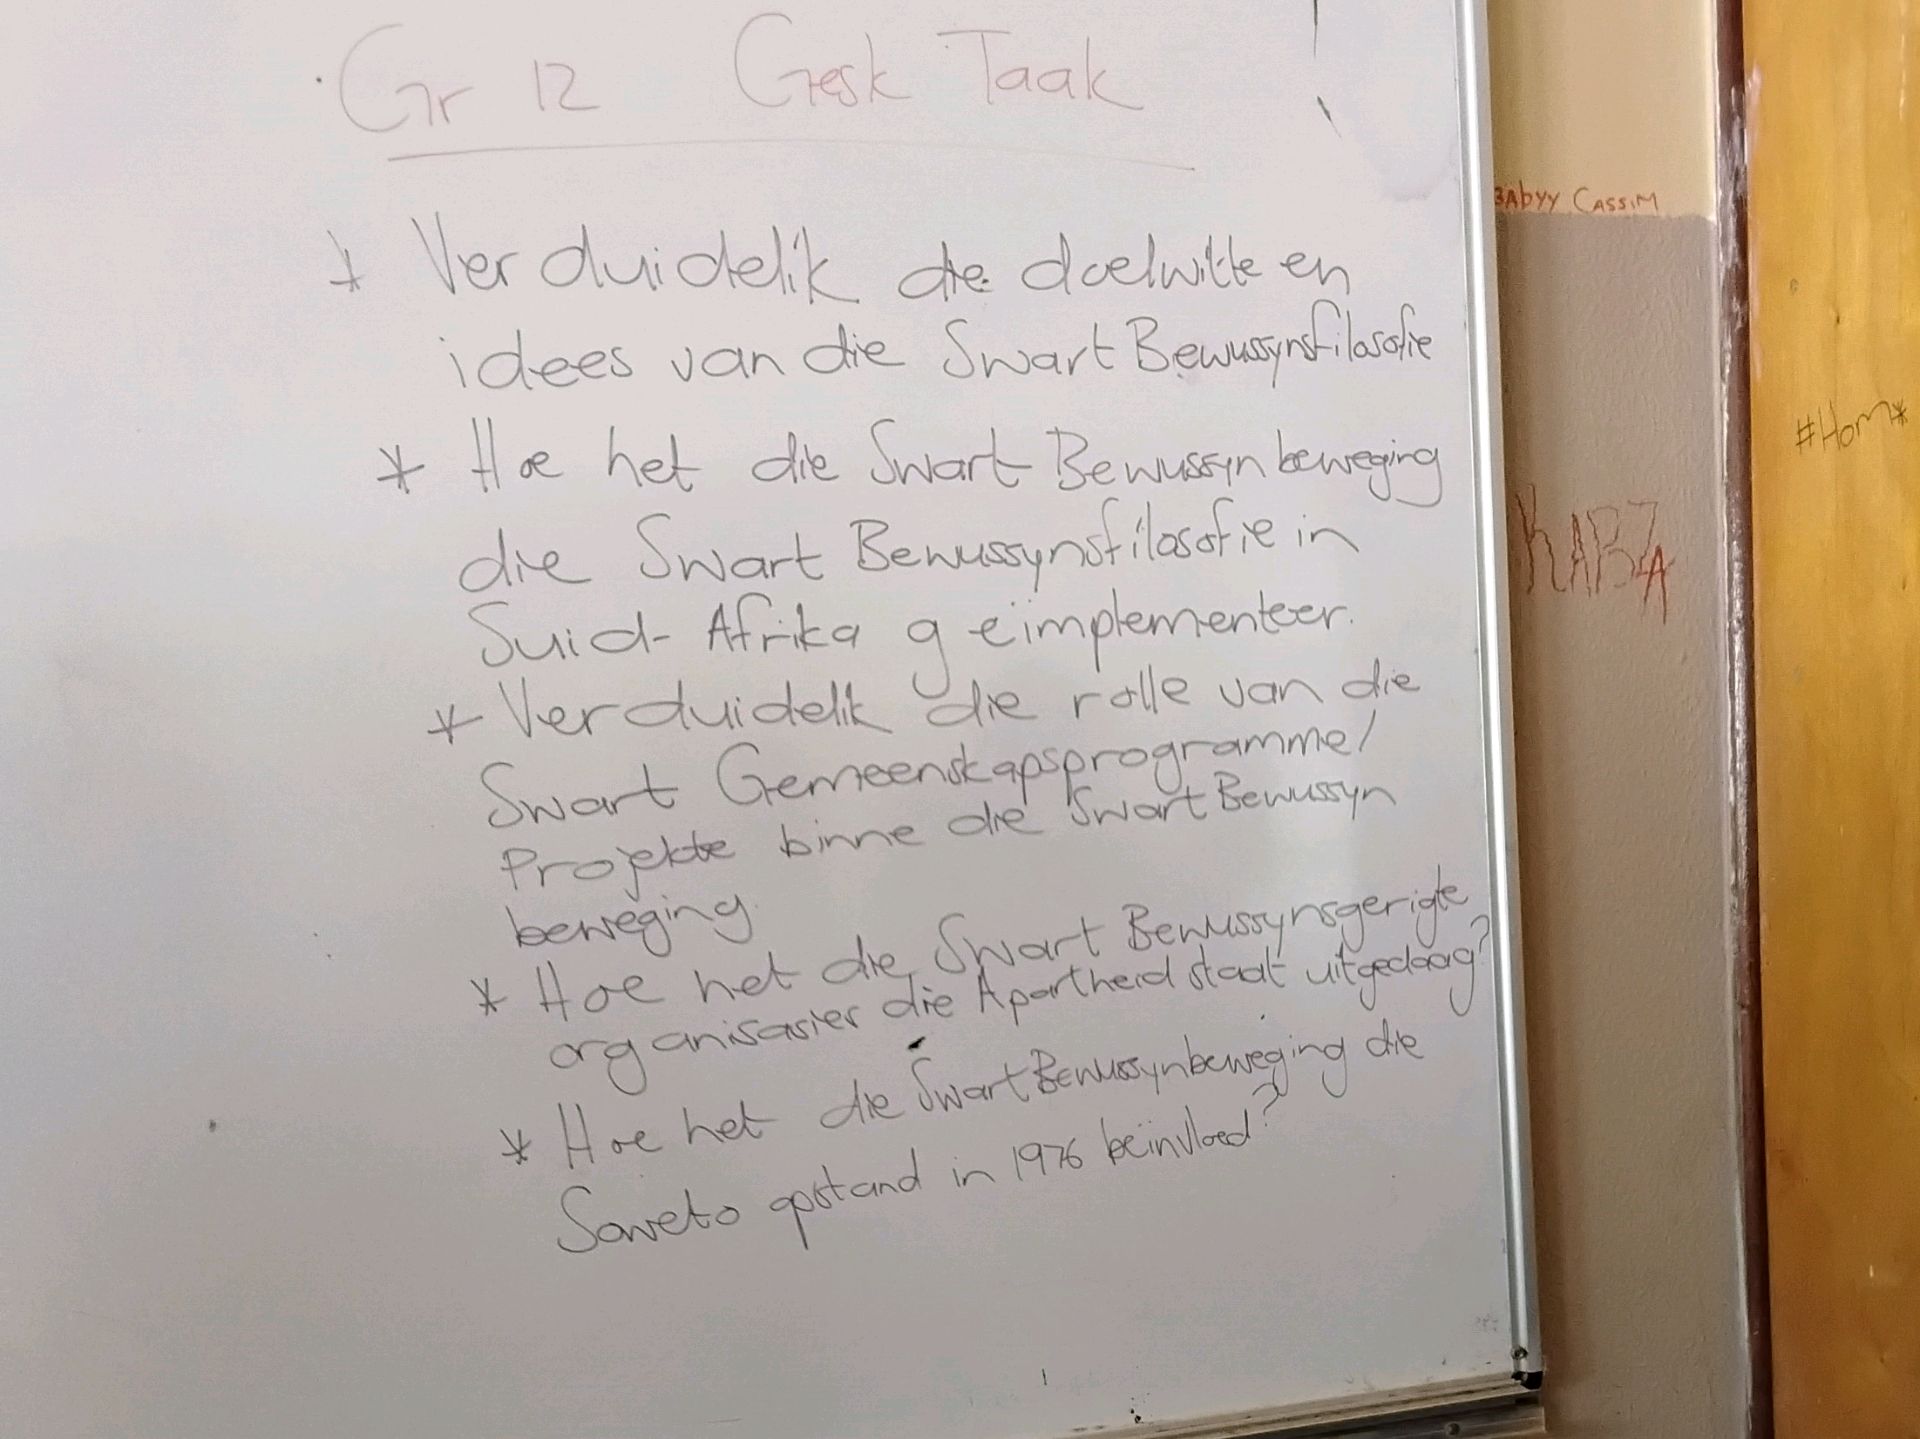 Gr 12 Gesk Taak
* Verduidelik die doelwitte en
idees van die Swart Bewussynsfilosofie
* Hoe het die Swart Bewussynbeweging
die Swart Bewussynsfilosofie in
Suid-Afrika geïmplementeer.
* Verduidelik die rolle van die
Swart Gemeenskapsprogramme/
Projekte binne die Swart Bewussyn
beweging.
* Hoe het die Swart Bewussynsgerigte
organisasies die Apartheid staat uitgedaag?
* Hoe het die Swart Bewussynbeweging die
Soweto opstand in 1976 beïnvloed?
BABYY CASSIM
#Hom*
KABZA